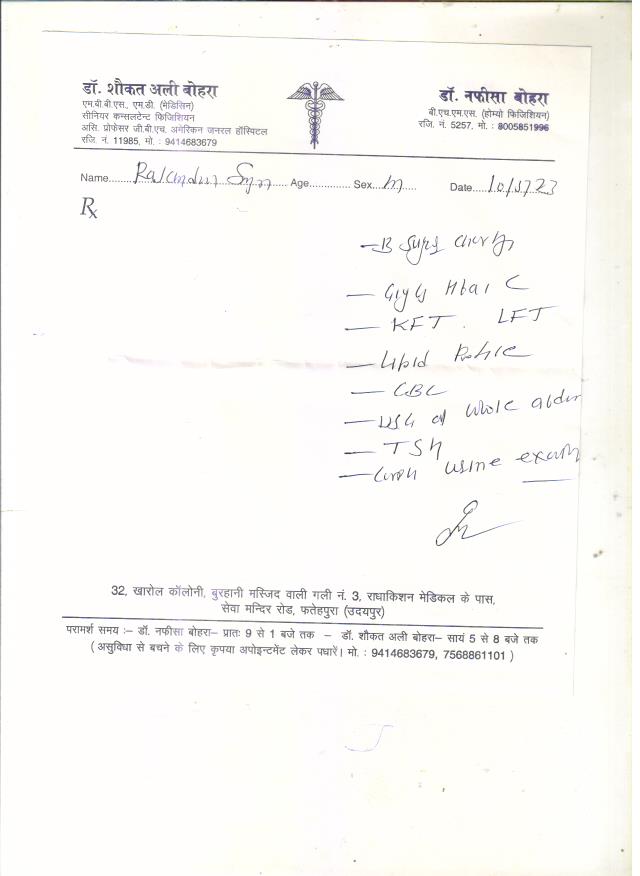 डॉ. शौकत अली बोहरा
एम.बी.बी.एस., एम.डी. (मेडिसिन)
सीनियर कन्सलटेन्ट फिजिशियन
असि. प्रोफेसर जी.बी.एच. अमेरिकन जनरल हॉस्पिटल
रजि. नं. 11985, मो. : 9414683679
डॉ. नफीसा बोहरा
बी.एच.एम.एस. (होम्यो फिजिशियन)
रजि. नं. 5257, मो. : 8005851996
Name........ Age............. Sex...m..... Date....
Rx
— B sugar
— HbA1C
— KFT. LFT
— Lipid Profile
— CBC
— USG of whole abdom
— TSH
— urine exam
32, खारोल कॉलोनी, बुरहानी मस्जिद वाली गली नं. 3, राधाकिशन मेडिकल के पास,
सेवा मन्दिर रोड, फतेहपुरा (उदयपुर)
परामर्श समय :– डॉ. नफीसा बोहरा– प्रातः 9 से 1 बजे तक – डॉ. शौकत अली बोहरा– सायं 5 से 8 बजे तक
( असुविधा से बचने के लिए कृपया अपोइन्टमेंट लेकर पधारें। मो. : 9414683679, 7568861101 )